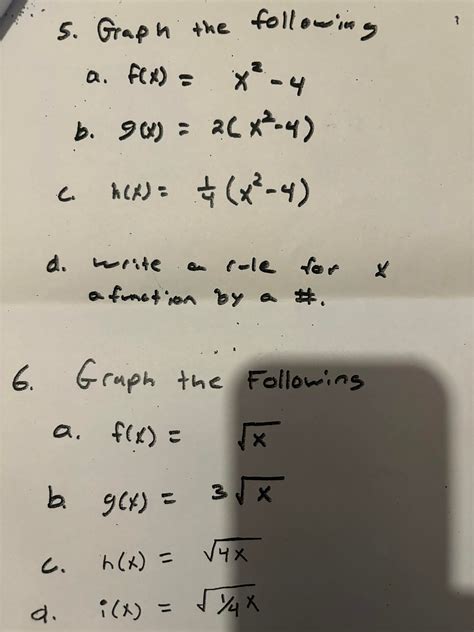 5. Graph the following
a. f(x) = x² - 4
b. g(x) = 2(x²-4)
c. h(x) = 1/4 (x²-4)
d. write a rule for x
a function by a #.
6. Graph the Following
a. f(x) = √x
b. g(x) = 3√x
c. h(x) = √4x
d. i(x) = √1/4x